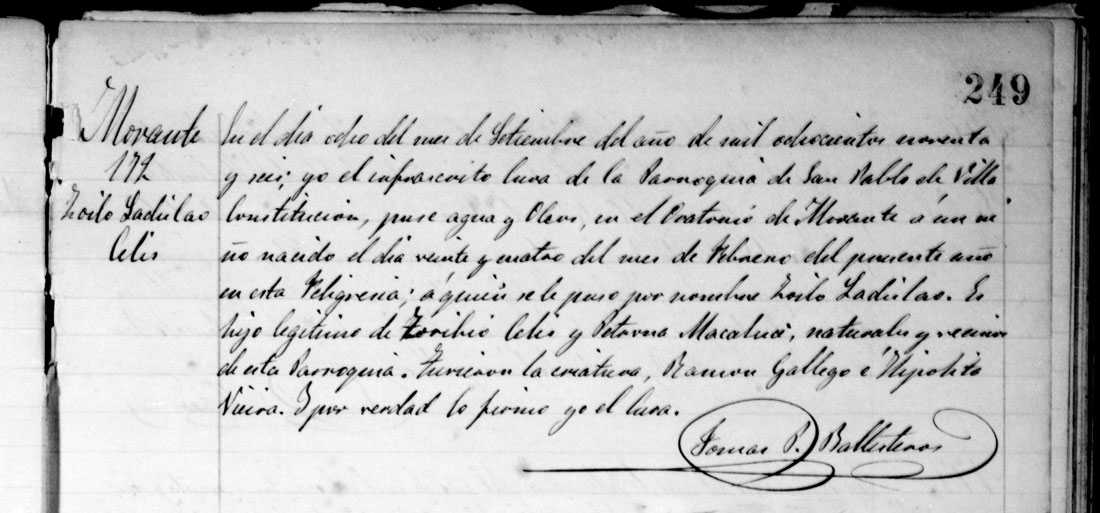 249
Morante
172
Zoilo Ladislao
Celis
En el dia ocho del mes de Setiembre del año de mil ochocientos noventa
y seis; yo el infrascrito Cura de la Parroquia de San Pablo de Villa
Constitucion, puse agua y Oleos, en el Oratorio de Morante á un ni
ño nacido el dia veinte y cuatro del mes de Febrero del presente año
en esta Feligresia; á quien se le puso por nombre Zoilo Ladislao. Es
hijo legitimo de Toribio Celis y Petrona Macaluci, naturales y vecinos
de esta Parroquia. Tuvieron la criatura, Ramon Gallego é Hipolito
Vieira. I por verdad lo firmo yo el Cura.
Tomas P. Ballesteros